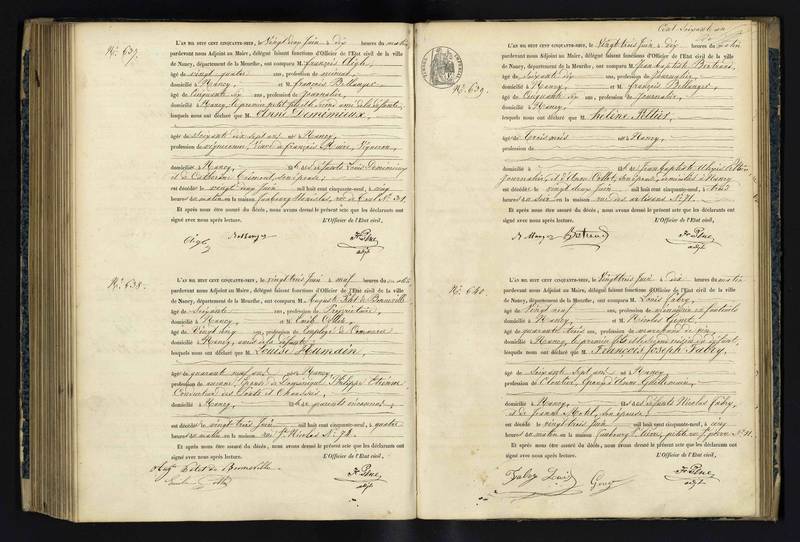 No. 637.
L'AN MIL HUIT CENT CINQUANTE-NEUF, le Vingt deux Juin à Dix heures du matin
pardevant nous Adjoint au Maire, délégué faisant fonctions d'Officier de l'État civil de la ville
de Nancy, département de la Meurthe, ont comparu M. François Aigle
âgé de vingt quatre ans, profession de
domicilié à Nancy et M. François Bellanger
âgé de Soixante dix ans, profession de Journalier,
domicilié à Nancy, le premier petit fils et le second ami de la défunte,
lesquels nous ont déclaré que M. Anne Demimieux,
âgée de Soixante dix sept ans né à Nancy,
profession de Veuve de François Vigneron,
domicilié à Nancy fille de défunts Louis Demimieux
et de Catherine son épouse;
est décédé le vingt deux Juin mil huit cent cinquante-neuf, à cinq
heures du matin en la maison faubourg Stanislas, rue de Toul No. 31,
Et après nous être assuré du décès, nous avons dressé le présent acte que les déclarants ont
signé avec nous après lecture. L'Officier de l'État civil,
Aigle Bellanger
adjt.
No. 638.
L'AN MIL HUIT CENT CINQUANTE-NEUF, le vingt trois Juin à neuf heures du matin
pardevant nous Adjoint au Maire, délégué faisant fonctions d'Officier de l'État civil de la ville
de Nancy, département de la Meurthe, ont comparu M. Auguste Petit de Bonneville
âgé de Soixante ans, profession de Propriétaire,
domicilié à Nancy, et M. Emile Collet,
âgé de Vingt cinq ans, profession de Employé de Commerce
domicilié à Nancy, amis de la défunte
lesquels nous ont déclaré que M. Louise Humdin,
âgée de quarante neuf ans né à Nancy,
profession de aucune, Epouse de Dominique Philippe Etienne
Conducteur des Ponts et Chaussées,
domicilié à Nancy fille de parents inconnus,
est décédé le vingt trois Juin mil huit cent cinquante-neuf, à quatre
heures du matin en la maison rue St. Nicolas No. 74.
Et après nous être assuré du décès, nous avons dressé le présent acte que les déclarants ont
signé avec nous après lecture. L'Officier de l'État civil,
Aug. Petit de Bonneville
adjt.
Cent Soixante un
No. 639.
L'AN MIL HUIT CENT CINQUANTE-NEUF, le Vingt trois Juin à dix heures du matin
pardevant nous Adjoint au Maire, délégué faisant fonctions d'Officier de l'État civil de la ville
de Nancy, département de la Meurthe, ont comparu M. Jean Baptiste Bertrand,
âgé de Soixante dix ans, profession de Journalier,
domicilié à Nancy, et M. François Bellanger
âgé de Soixante dix ans, profession de Journalier,
domicilié à Nancy,
lesquels nous ont déclaré que M. Hélène Peltier,
âgé de Trois mois né à Nancy,
profession de
domicilié à fille de Jean Baptiste Peltier
Journalier, et d'Anne Collot, son épouse, domiciliés à Nancy
est décédé le vingt deux Juin mil huit cent cinquante-neuf, à Neuf
heures du soir en la maison rue des artisans No. 71.
Et après nous être assuré du décès, nous avons dressé le présent acte que les déclarants ont
signé avec nous après lecture. L'Officier de l'État civil,
Bellanger Bertrand
adjt.
No. 640.
L'AN MIL HUIT CENT CINQUANTE-NEUF, le Vingt trois Juin à Dix heures du matin
pardevant nous Adjoint au Maire, délégué faisant fonctions d'Officier de l'État civil de la ville
de Nancy, département de la Meurthe, ont comparu M. Louis Fabry,
âgé de Vingt neuf ans, profession de menuisier en fauteuils
domicilié à Nancy, et M. Nicolas
âgé de quarante trois ans, profession de marchand de vin,
domicilié à Nancy, le premier fils et le second voisin du défunt,
lesquels nous ont déclaré que M. François Joseph Fabry,
âgé de Soixante Sept ans né à Nancy,
profession de Cloutier, Epoux d'Anne
domicilié à Nancy, fils de défunts Nicolas Fabry
et de Jeanne son épouse;
est décédé le vingt trois Juin mil huit cent cinquante-neuf, à cinq
heures du matin en la maison faubourg St. Pierre, No. 11.
Et après nous être assuré du décès, nous avons dressé le présent acte que les déclarants ont
signé avec nous après lecture. L'Officier de l'État civil,
Fabry Louis
adjt.